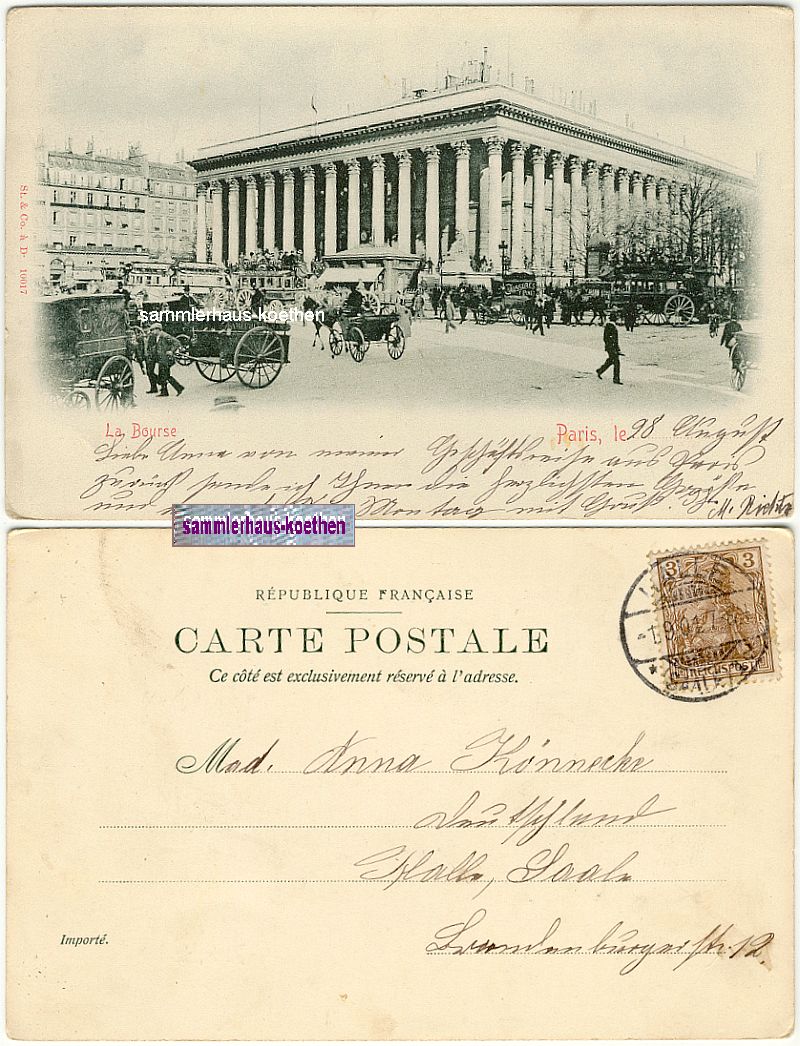 St. & Co. à D. 10017
sammlerhaus-koethen
La Bourse
Paris, le 28 August
Liebe Anna von meiner Geschäftsreise aus Paris
zurück sende ich Ihnen die herzlichsten Grüße
und Montag mit Gruß. M. Richter
sammlerhaus-koethen
RÉPUBLIQUE FRANÇAISE
CARTE POSTALE
Ce côté est exclusivement réservé à l'adresse.
3 3
REICHSPOST
HALLE
Mad. Anna Könnecke
Deutschland
Halle, Saale
Importé.
Brandenburgerstr. 12.